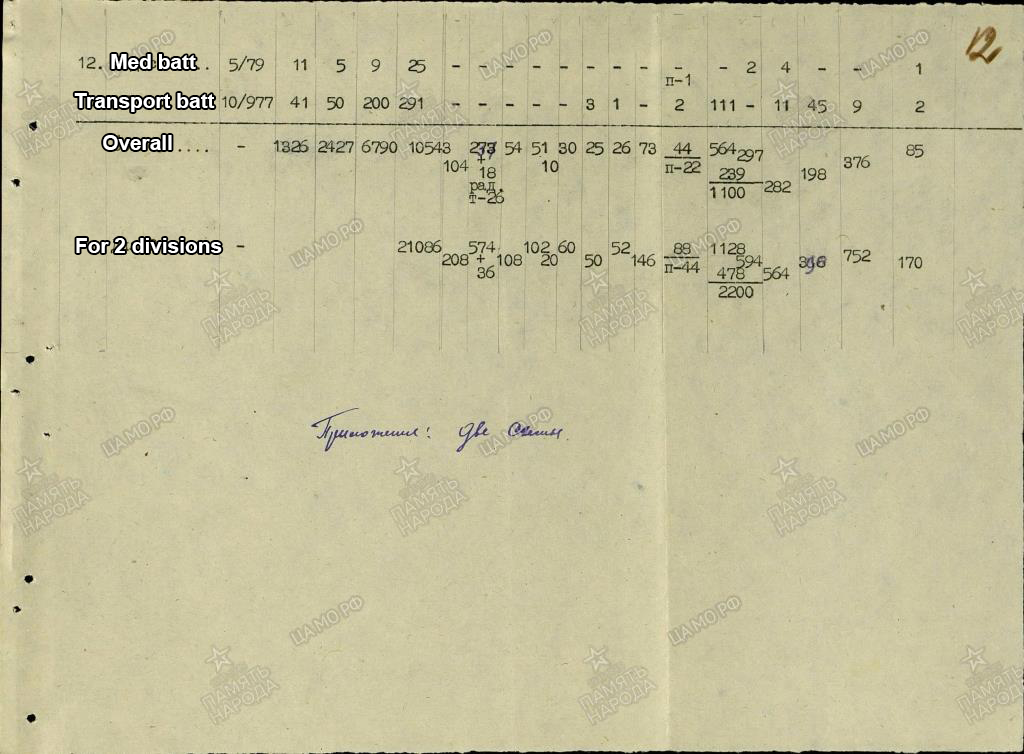 12
12. Med batt . 5/79 11 5 9 25 - - - - - - - - - - 2 4 - - 1
п-1
Transport batt 10/977 41 50 200 291 - - - - - 3 1 - 2 111 - 11 45 9 2
Overall .... - 1326 2427 6790 10543 104 54 51 30 25 26 73 44 564 297 198 376 85
+ 18 10 п-22 239 282
рад. 1100
т-26
For 2 divisions - 21086 208 574 108 102 60 50 52 146 88 1128 594 564 752 170
+ 20 п-44 478
36 2200
Приложения: две схемы.
ЦАМО.РФ
ПАМЯТЬ НАРОДА